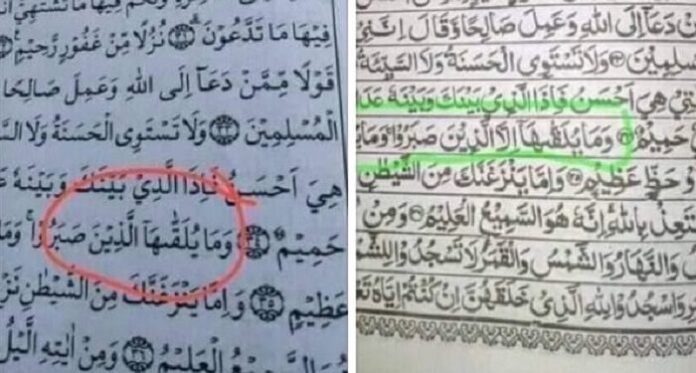 فِيْهَا مَا تَشْتَهِيْ
فِيْهَا مَا تَدَّعُوْنَ ۳۱ نُزُلًا مِّنْ غَفُوْرٍ رَّحِيْمٍ
قَوْلًا مِّمَّنْ دَعَآ اِلَى اللهِ وَعَمِلَ صَالِحًا
الْمُسْلِمِيْنَ ۳۳ وَلَا تَسْتَوِى الْحَسَنَةُ وَلَا
هِيَ اَحْسَنُ فَاِذَا الَّذِيْ بَيْنَكَ وَبَيْنَهٗ
حَمِيْمٌ ۳۴ وَمَا يُلَقّٰىهَآ الَّذِيْنَ صَبَرُوْا وَمَا
عَظِيْمٍ ۳۵ وَاِمَّا يَنْزَغَنَّكَ مِنَ الشَّيْطٰنِ
الْعَلِيْمُ ۳۶ وَمِنْ اٰيٰتِهِ الَّيْلُ
دَعَآ اِلَى اللهِ وَعَمِلَ صَالِحًا وَّقَالَ اِنَّنِيْ
وَلَا تَسْتَوِى الْحَسَنَةُ وَلَا السَّيِّئَةُ
هِيَ اَحْسَنُ فَاِذَا الَّذِيْ بَيْنَكَ وَبَيْنَهٗ
حَمِيْمٌ وَمَا يُلَقّٰىهَآ اِلَّا الَّذِيْنَ صَبَرُوْا وَمَا
حَظٍّ عَظِيْمٍ وَاِمَّا يَنْزَغَنَّكَ مِنَ الشَّيْطٰنِ
بِاللهِ اِنَّهٗ هُوَ السَّمِيْعُ الْعَلِيْمُ وَمِنْ
وَالنَّهَارُ وَالشَّمْسُ وَالْقَمَرُ لَا تَسْجُدُوْا
وَاسْجُدُوْا لِلهِ الَّذِيْ خَلَقَهُنَّ اِنْ كُنْتُمْ اِيَّاهُ